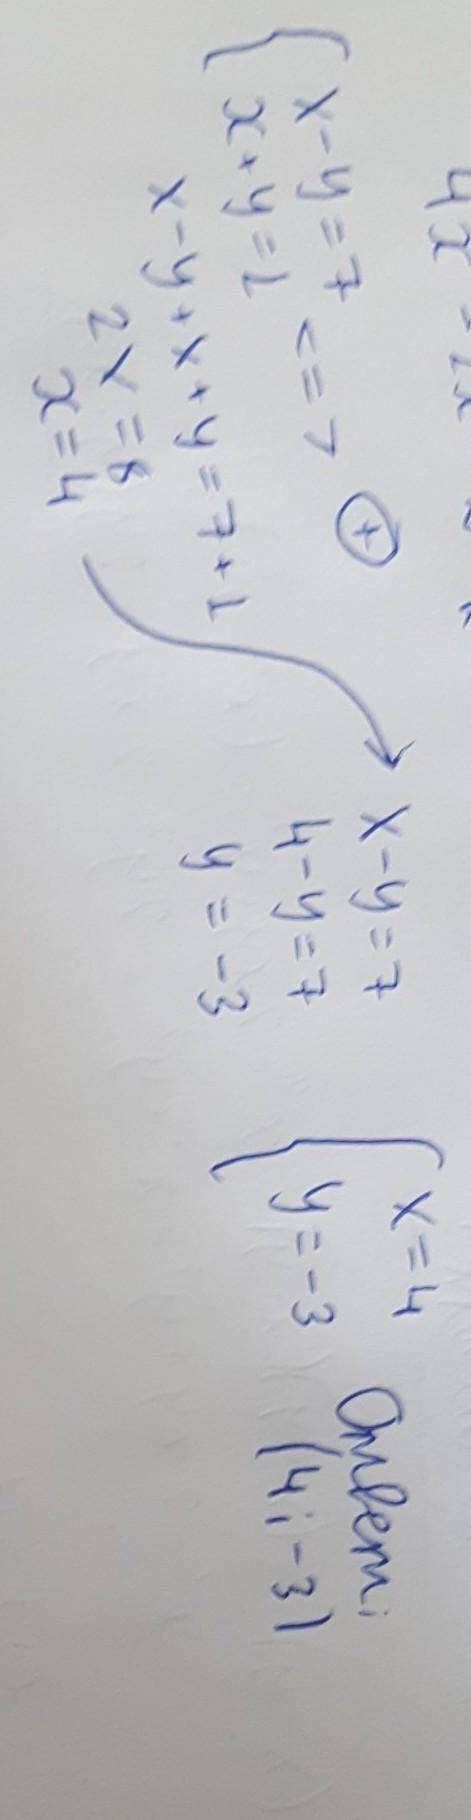 x-y=7
x+y=1 <=> ⊕
x-y+x+y=7+1
2x=8
x=4
x-y=7
4-y=7
y=-3
x=4
y=-3
Ответ:
(4;-3)